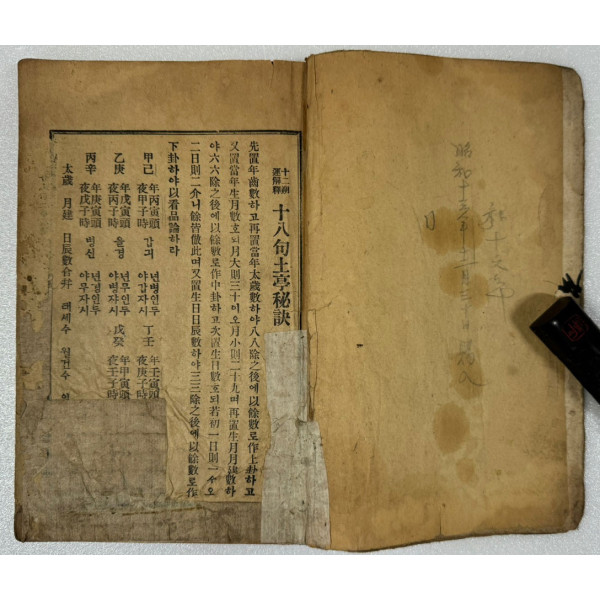 昭和十
十二朔
運解釋
十八句土亭秘訣
先置年齒數하고再置當年太歲數하야八八除之後에以餘數로作上卦하고
又置當年生月數호되月大則三十이오月小則二十九며再置生月月建數하
야六六除之後에以餘數로作中卦하고次置生日數호되若初一日則一수오
二日則二介니餘皆倣此며又置生日日辰數하야三三除之後에以餘數로作
下卦하야以看品論하라
甲己 年丙寅頭 갑긔 년병인두 丁壬 年壬寅頭
夜甲子時 야갑자시 夜庚子時
乙庚 年戊寅頭 을경 년무인두 戊癸 年甲寅頭
夜丙子時 야병자시 夜壬子時
丙辛 年庚寅頭 병신 년경인두
夜戊子時 야무자시
太歲 月建 日辰數合幷 태세수 월건수